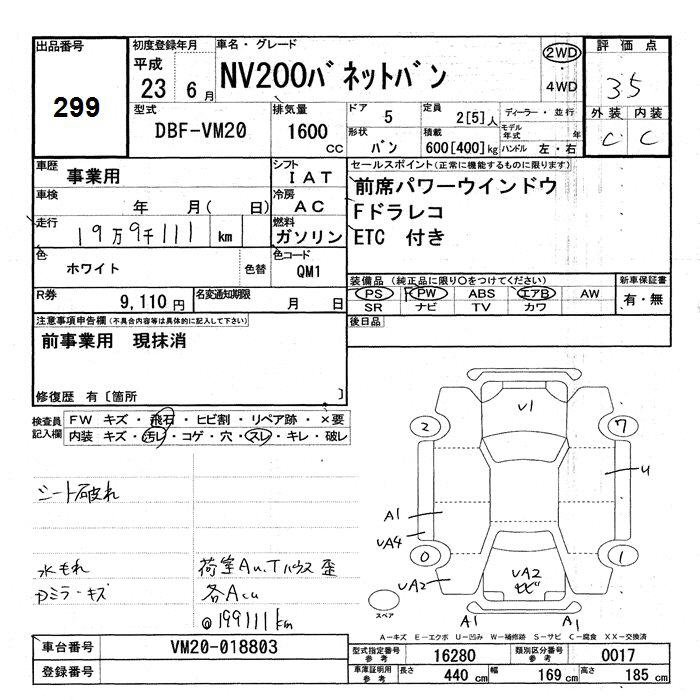 出品番号
299
初度登録年月
平成
23年 6月
車名・グレード
NV200バネットバン
2WD
・
4WD
評価点
35
外装 内装
C C
型式
DBF-VM20
排気量
1600
CC
ドア
5
定員
2[5]人
形状
バン
積載
600[400]kg
ディーラー・並行
モデル年式 年
ハンドル 左・右
車歴
事業用
シフト
I A T
車検
年 月( 日)
冷房
A C
走行
19万9千111 km
燃料
ガソリン
色
ホワイト
色替
色コード
QM1
R券
9,110円
名変通知期限
月 日
セールスポイント(正常に機能するものに限ります)
前席パワーウインドウ
Fドラレコ
ETC 付き
装備品(純正品に限り〇をつけてください)
PS PW ABS エアB AW
SR ナビ TV カワ
新車保証書
有・無
後日品
注意事項申告欄(不具合内容等は具体的に記入して下さい)
前事業用 現抹消
修復歴 有〔箇所 〕
検査員
記入欄
FW キズ・飛石・ヒビ割・リペア跡・×要
内装 キズ・汚レ・コゲ・穴・スレ・キレ・破レ
シート破れ
水もれ
Pミラーキズ
荷室AU.Tハウス歪
各ACU
@199111km
V1
2
7
U
A1
UA4
0
1
UA2
UA2
サビ
スペア
A1
A1
A-キズ E-エクボ U-凹み W-補修跡 S-サビ C-腐食 XX-交換済
車台番号
VM20-018803
登録番号
型式指定番号
参考
16280
類別区分番号
参考
0017
車庫証明用
参考
長さ 440 cm
幅 169 cm
高さ 185 cm